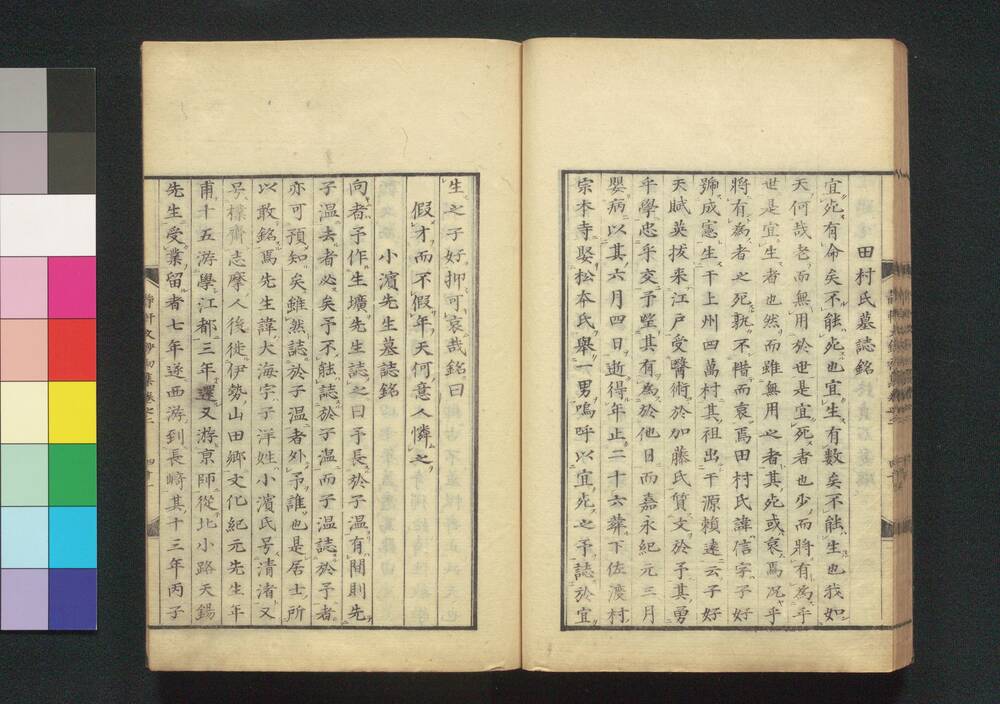 田村氏墓誌銘
宜死有命矣不能死也宜生有數矣不能生也我如
天何哉老而無用於世是宜死者也少而將有為乎
世是宜生者也然而雖無用之者其死或哀焉况乎
將有為者之死孰不惜而哀焉田村氏諱信字子好
號成憲生干上州四萬村其祖出干源賴遠云子好
天賦英拔来江戶受醫術於加藤氏質文於予其勇
乎學忠乎交予望其有為於他日而嘉永紀元三月
嬰病以其六月四日逝得年正二十六葬下佐渡村
宗本寺娶松本氏舉一男嗚呼以宜死之予誌於宜
生之子好抑可哀哉銘曰
假才而不假年天何意人憐之
小濱先生墓誌銘
向者予作生壙先生誌之曰予長於子溫有間則先
子溫去者必矣予不能誌於子溫而子溫誌於予者
亦可預知矣雖然誌於子溫者外予誰也是居士所
以敢銘焉先生諱大海字子洋姓小濱氏号清渚又
号樸齋志摩人後徙伊勢山田鄉文化紀元先生年
甫十五游學江都三年還又游京師從北小路天錫
先生受業留者七年遂西游到長崎其十三年丙子
静軒文鈔初集卷之二
四十一